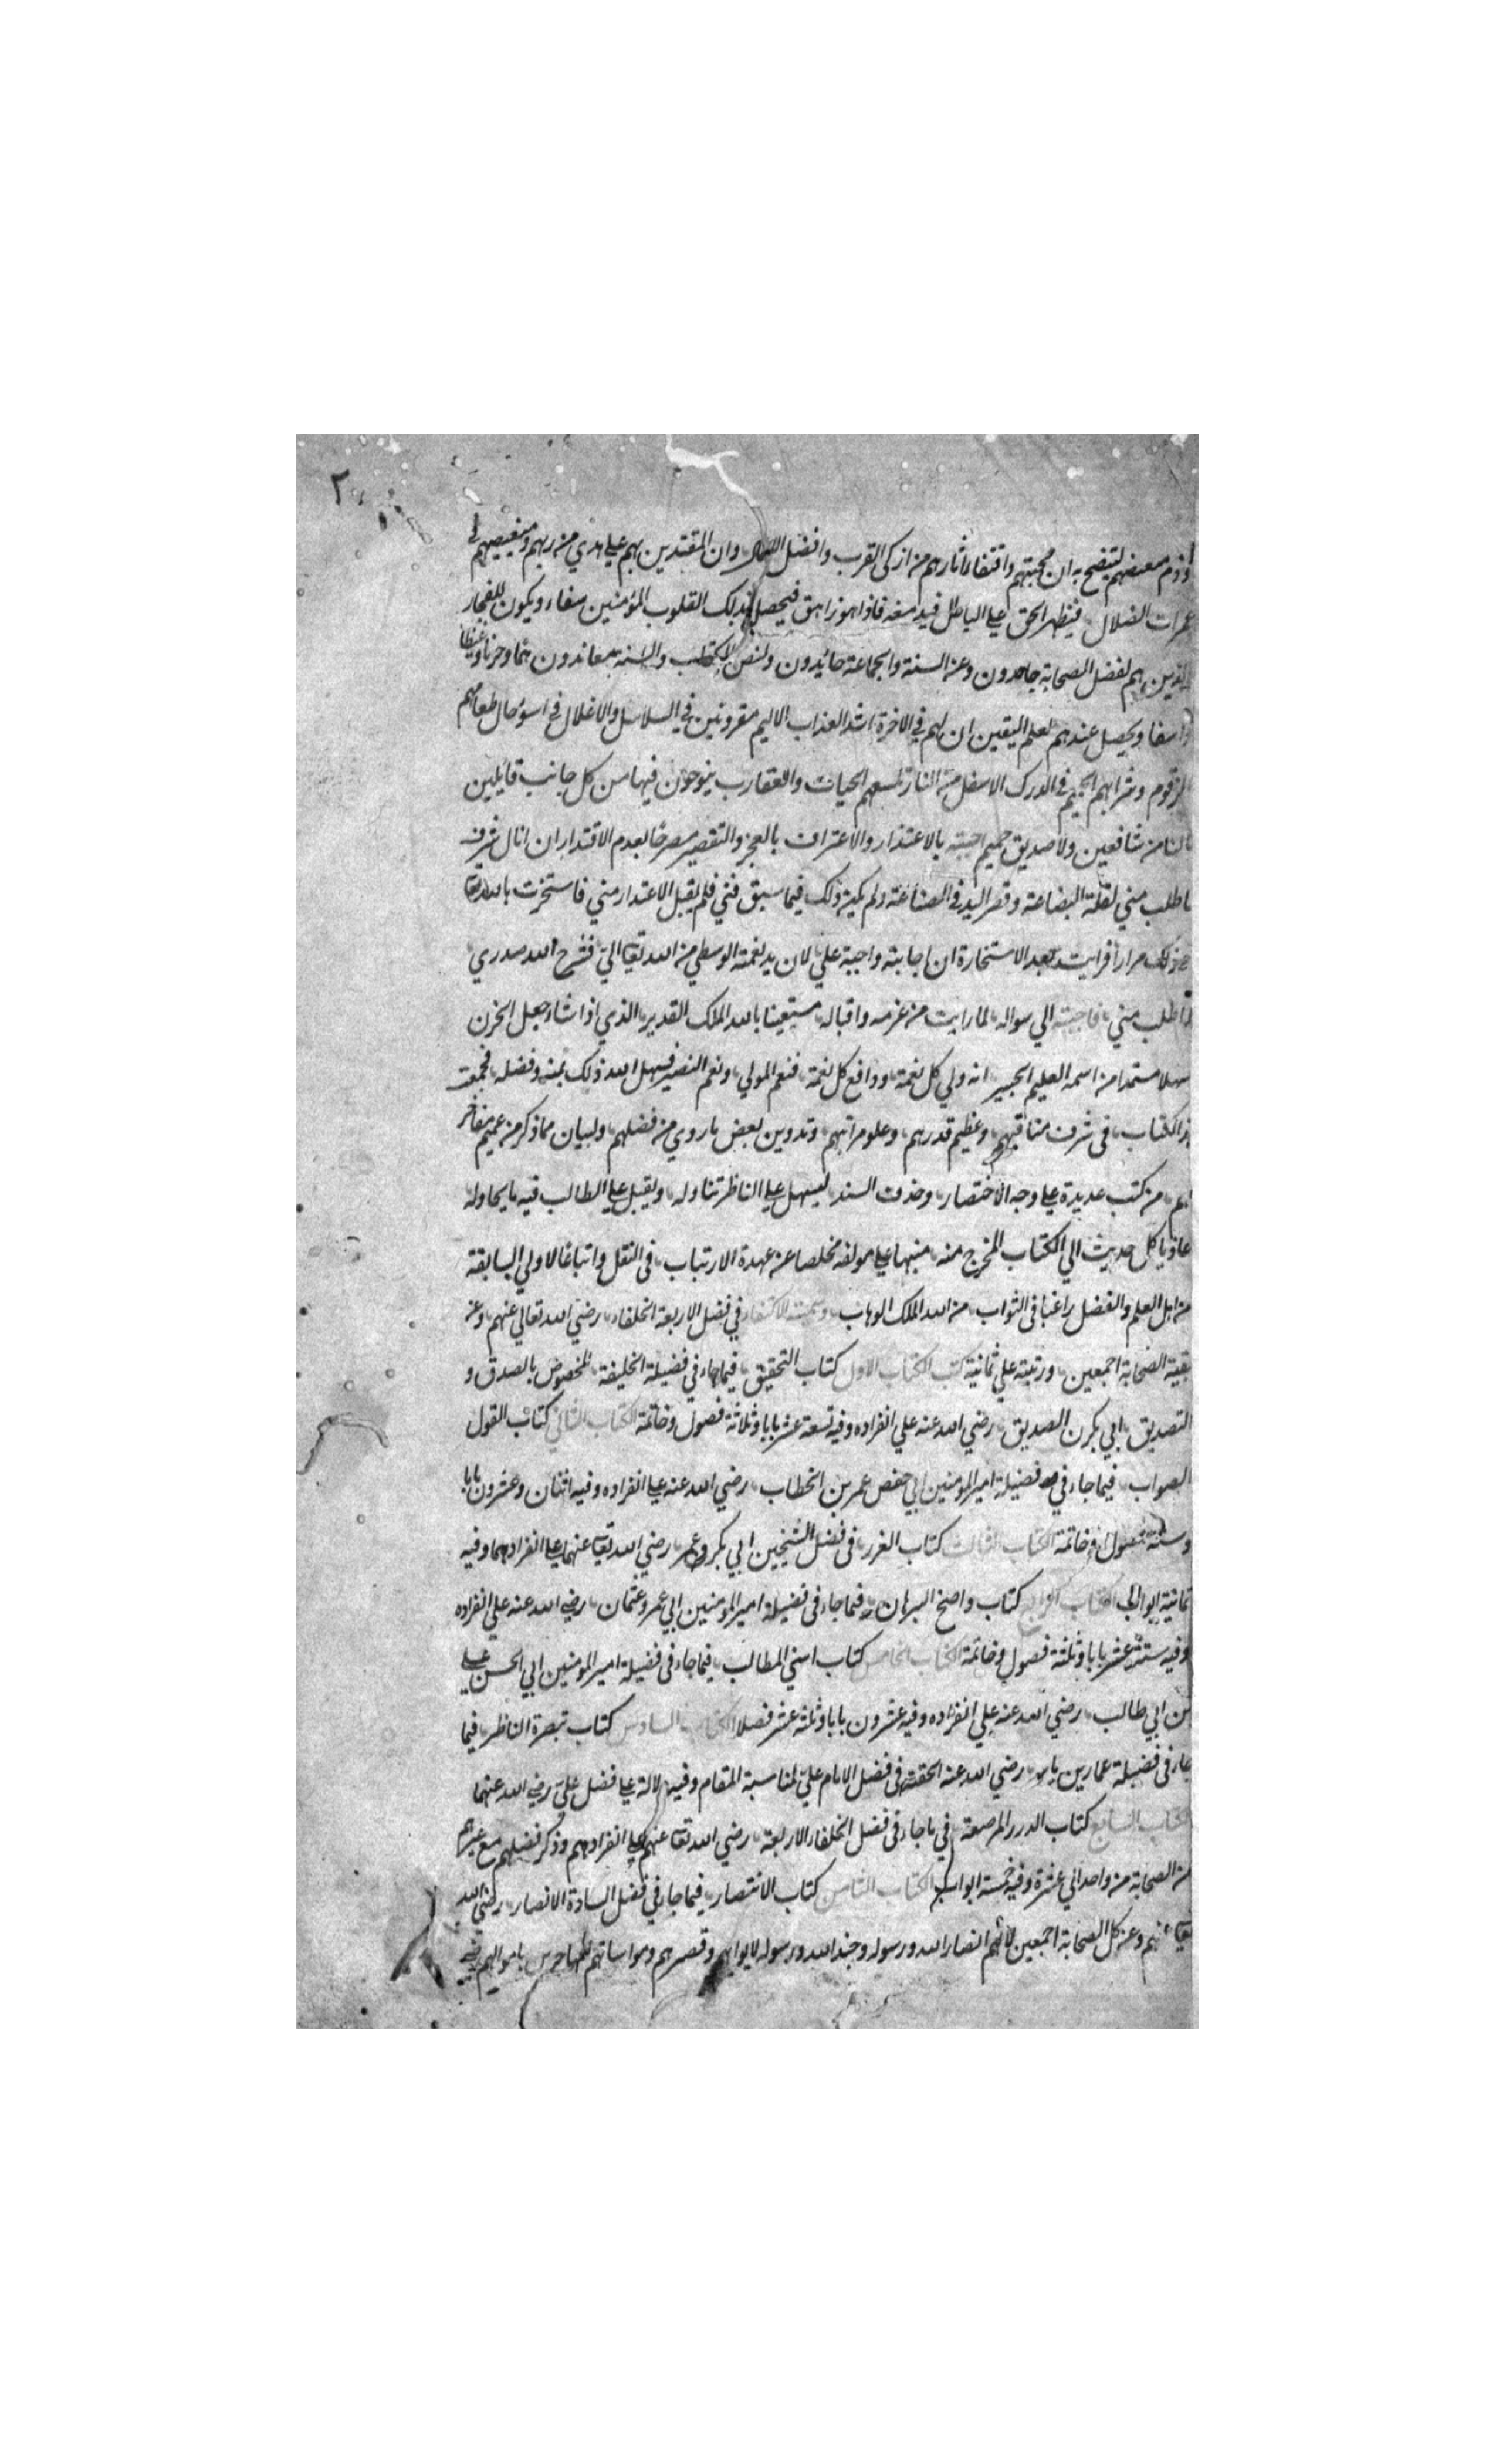 ٢
وذم مبغضهم ليتضح به ان محبتهم واقتفاء اثارهم من ازكى القرب وافضل الاعمال وان المقتدين بهم علي هدي من ربهم ومبغضيهم في
غمرات الضلال فيظهر الحق علي الباطل فيدمغه فاذا هو زاهق فيحصل بذلك القلوب المؤمنين سفاء ويكون للفجار
الذين هم لفضل الصحابة جاحدون وعن السنة والجماعة حائدون ولنص الكتاب والسنة معاندون غما وحزنا وغيظا
واسفا ويحصل عندهم لعلم اليقين ان لهم في الاخرة اشد العذاب الاليم مقرونين في السلاسل والاغلال في اسؤ حال طعامهم
الزقوم وشرابهم الحميم في الدرك الاسفل من النار تلسعهم الحيات والعقارب ينوحون فيها من كل جانب قايلين
مالنا من شافعين ولا صديق حميم اجبته بالاعتذار والاعتراف بالعجز والتقصير مصرحا بعدم الاقتدار ان انال شرف
ما طلب مني لقلة البضاعة وقصر اليد في الصناعة ولم يكن ذلك فيما سبق فني فلم يقبل الاعتذار مني فاستخرت بالله تعالى
في ذلك مرارا فرايت بعد الاستخارة ان اجابته واجبة علي لان يد نعمته الوسطي من الله تعالى الي فشرح الله صدري
لما طلب مني فاجبته الي سواله لما رايت من عزمه واقباله مستعينا بالله الملك القدير الذي اذا شاء جعل الحزن
سهلا مستمدا من اسمه العليم الخبير انه ولي كل نعمة ودافع كل نقمة فنعم المولي ونعم النصير فسهل الله ذلك بمنه وفضله فجمعت
هذا الكتاب في شرف مناقبهم وعظيم قدرهم وعلو مراتبهم وتدوين بعض ما روي من فضلهم ولبيان مما ذكر من عميم مفاخر
هم من كتب عديدة علي وجه الاختصار وحذف السند ليسهل علي الناظر تناوله ويقبل علي الطالب فيه ما يحاوله
عازيا كل حديث الي الكتاب المخرج منه منبها علي مولفه مخلصا عن عهدة الارتياب في النقل واتباعا لاولي السابقة
من اهل العلم والفضل راغبا في الثواب من الله الملك الوهاب وسميته الاكتفاء في فضل الاربعة الخلفاء رضي الله تعالي عنهم وعن
بقية الصحابة اجمعين ورتبته علي ثمانية كتب الكتاب الاول كتاب التحقيق فيما جاء في فضيلة الخليفة المخصوص بالصدق و
التصديق ابي بكرن الصديق رضي الله عنه علي انفراده وفيه تسعة عشر بابا وثلاثة فصول وخاتمة الكتاب الثاني كتاب القول
الصواب فيما جاء في فضيلة امير المومنين ابي حفص عمر بن الخطاب رضي الله عنه علي انفراده وفيه اثنان وعشرون بابا
وستة فصول وخاتمة الكتاب الثالث كتاب الغرر في فضل الشيخين ابي بكر وعمر رضي الله تعالى عنهما علي انفرادهما وفيه
ثمانية ابواب الكتاب الرابع كتاب واضح البرهان فيما جاء في فضيلة امير المومنين ابي عمرو عثمان رضي الله عنه علي انفراده
وفيه ستة عشر بابا وثلثة فصول وخاتمة الكتاب الخامس كتاب اسني المطالب فيما جاء في فضيلة امير المومنين ابي الحسن علي
بن ابي طالب رضي الله عنه علي انفراده وفيه عشرون بابا وثلثة عشر فصلا الكتاب السادس كتاب تبصرة الناظر فيما
جاء في فضيلة عمار بن ياسر رضي الله عنه الحقته في فضل الامام علي لمناسبة المقام وفيه دلالة علي فضل علي رضي الله عنهما
الكتاب السابع كتاب الدرر المرصعة في ما جاء في فضل الخلفاء الاربعة رضي الله تعالى عنهم علي انفرادهم وذكر فضلهم مع غيرهم
من الصحابة من واحد الي عشرة وفيه خمسة ابواب الكتاب الثامن كتاب الانتصار فيما جاء في فضل السادة الانصار رضي الله
تعالى عنهم وعن كل الصحابة اجمعين لانهم انصار الله ورسوله وجند الله ورسوله لايوايهم ونصرهم ومواساتهم للمهاجرين باموالهم